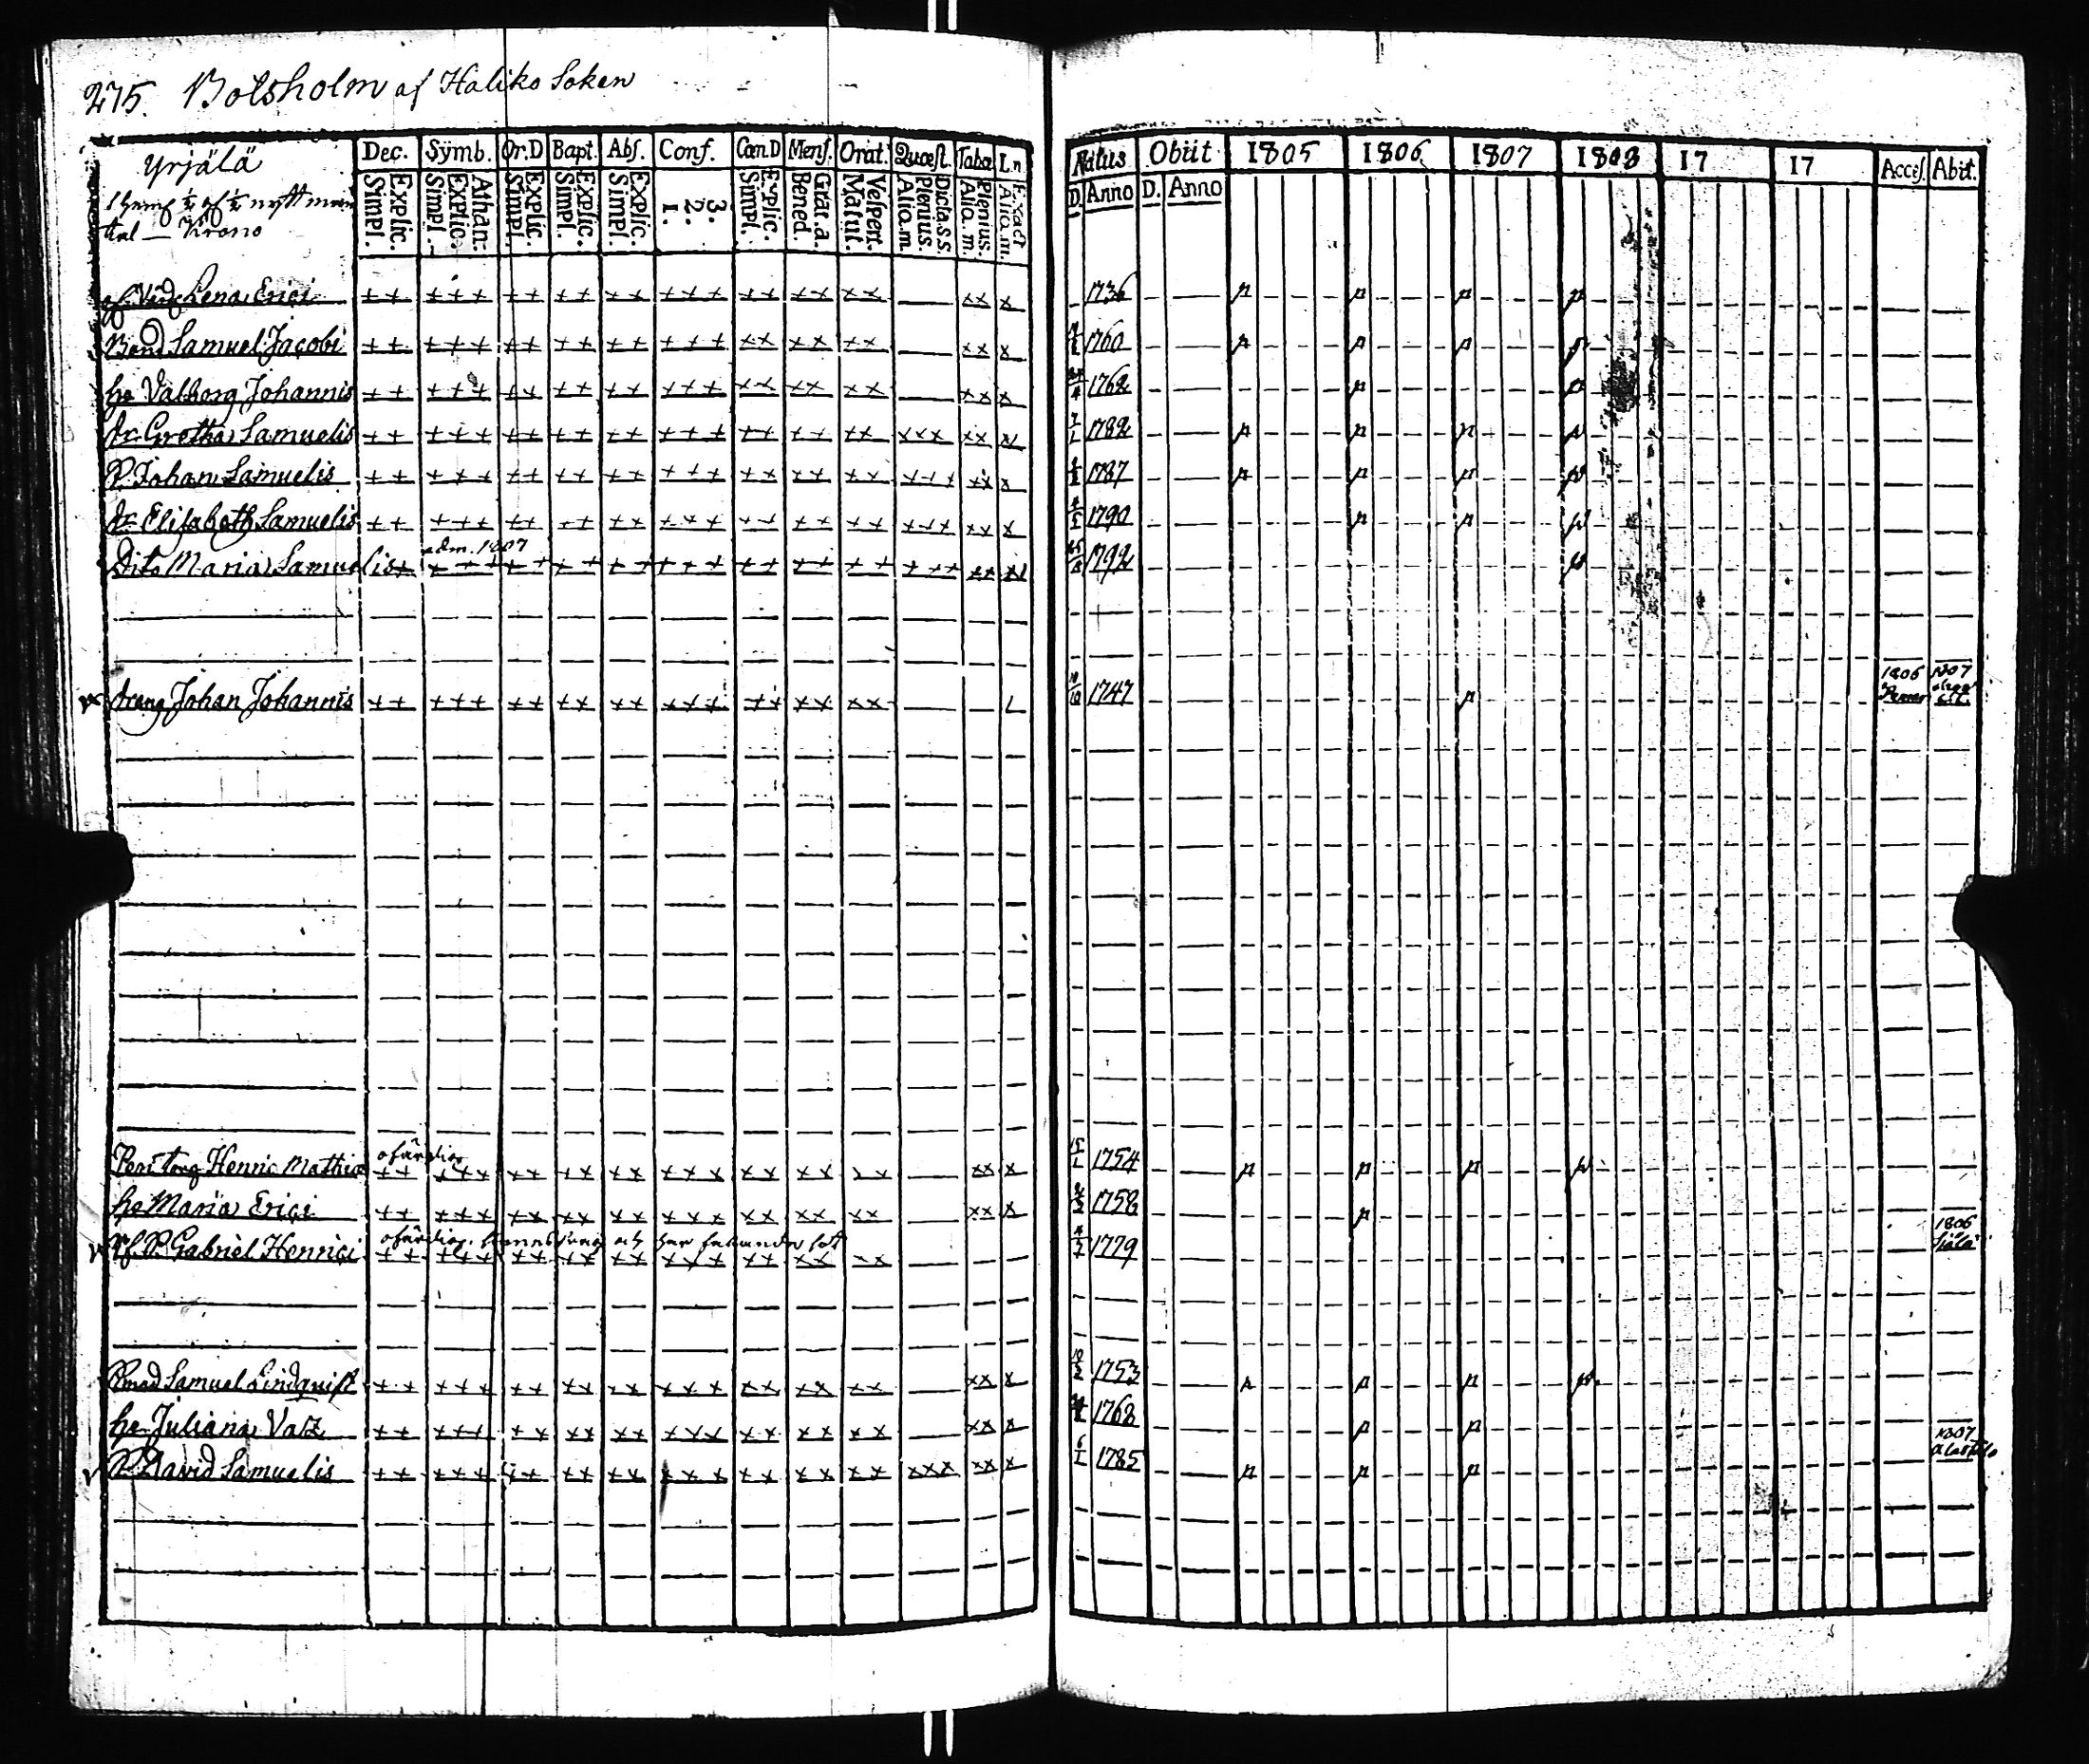 275. Botsholm af Haliko Soken
Yrjälä
Krono
Dec. Symb. Or.D Bapt. Abs. Conf. Cœn.D Mens. Orat. Quæst. Tabæ L.n
Explic. Simpl. Athan. Explic. Simpl. Explic. Simpl. Explic. Simpl. Explic. Simpl. 3. 2. 1. Explic. Simpl. Grat. a. Bened. Vespert. Matut. Dicta. s.s. Plenius. Alia. m. Plenius. Alia. m. Exact Alia. m.
Natus Obiit 1805 1806 1807 1808 17 17 Acces. Abit.
D. Anno D. Anno
Lena Erici ++ +++ ++ ++ ++ +++ ++ ++ ++ ++ + 1736 p p p p
Bond Samuel Jacobi ++ +++ ++ ++ ++ +++ ++ ++ ++ ++ + 1760 p p p p
hu Valborg Johannis ++ +++ ++ ++ ++ +++ ++ ++ ++ ++ + 1762 p p
dr Gretha Samuelis ++ +++ ++ ++ ++ +++ ++ ++ ++ +++ ++ + 1782 p p p p
P. Johan Samuelis ++ +++ ++ ++ ++ +++ ++ ++ ++ +++ ++ + 1787 p p p p
dr Elisabeth Samuelis ++ +++ ++ ++ ++ +++ ++ ++ ++ +++ ++ + 1790 p p p
adm. 1807
Dito Maria Samuelis + +++ ++ ++ ++ +++ ++ ++ ++ +++ ++ + 1792 p
dräng Johan Johannis ++ +++ ++ ++ ++ +++ ++ ++ ++ 1747 p 1806 1807
ofärdig
Henric Mathiæ ++ +++ ++ ++ ++ +++ ++ ++ ++ ++ + 15/1 1754 p p p p
hu Maria Erici ++ +++ ++ ++ ++ +++ ++ ++ ++ ++ + 1758 p
ofärdig
P. Gabriel Henrici ++ +++ ++ ++ ++ +++ ++ ++ ++ 1779 1806
Samuel Lindquist ++ +++ ++ ++ ++ +++ ++ ++ ++ ++ + 1753 p p p p
hu Juliana Vatz ++ +++ ++ ++ ++ +++ ++ ++ ++ ++ + 1768 p p
P. David Samuelis ++ +++ ++ ++ ++ +++ ++ ++ ++ +++ ++ + 6/1 1785 p p p 1807